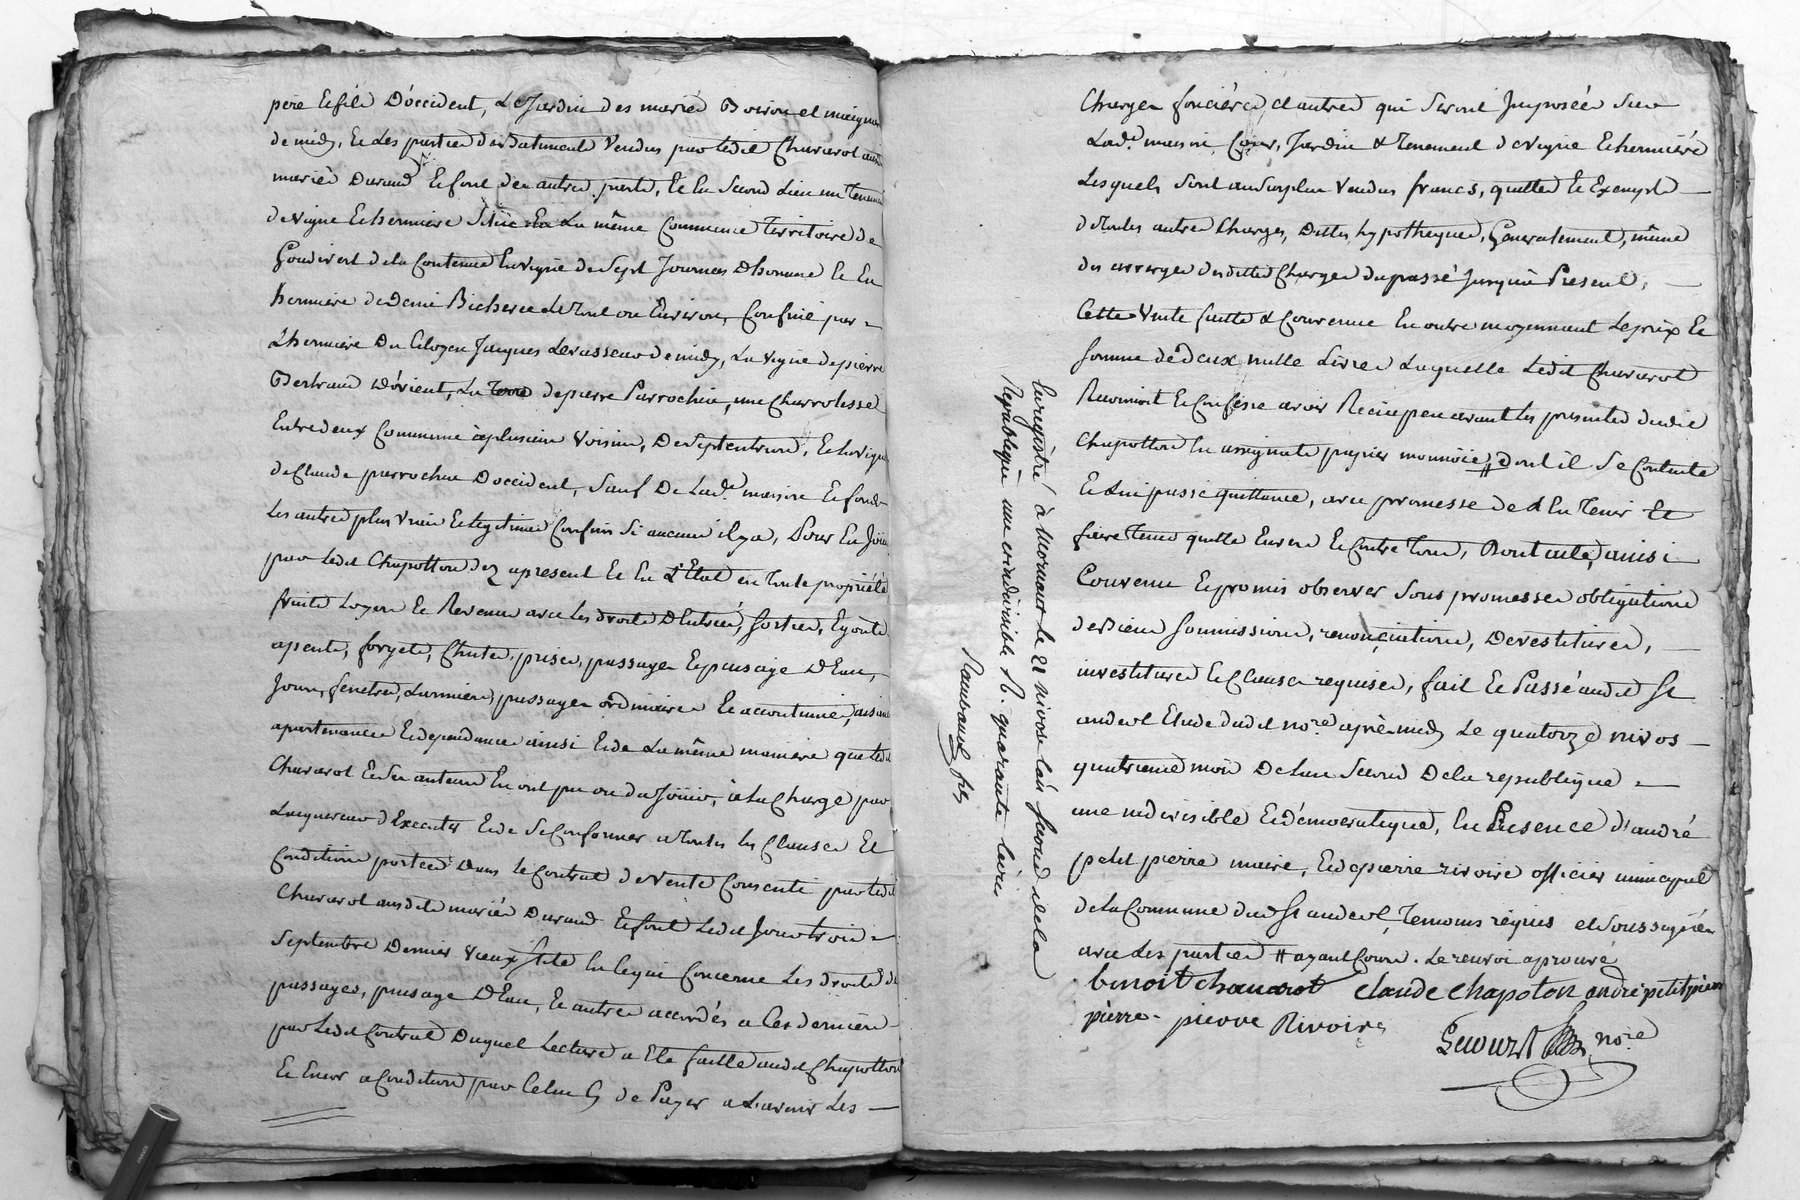 père et fils D'occident, Le Jardin des mariés Boiron et
de midy, Et Les parties des Batiments Vendus par ledit Chavarot aux
mariés Durand Et font des autres parts, Et En Second Lieu un tenement
de vigne Et hermière Situé En La même Commune Territoire de
Goudivert de la Contenue En vigne de Sept Journées D'homme Et En
hermière de Demi Bicherée Le Tout ou Environ, Confiné par =
L'hermière Du Citoyen Jacques Levasseur de midy, La vigne de pierre
Bertrand D'orient, La Terre de pierre Parrochia, une Charrolesse
Entre deux Commune à plusieurs voisins, De Septentrion, Et la vigne
de Claude parrochia D'occident, Sauf De Lad.e maison Et fonds
Les autres plus vrais Et legitimes Confins Si aucuns il y a, Pour En Jouir
par ledit Chapotton dez apresent Et En L'Etat en Toute propriété
fruits Loyers Et Revenus avec les droits D'Entrées, Sorties, Egouts
apents, forgets, Chutes, prises, passages Et puisage D'Eau,
Jours, fenetres, Lumieres, passages ordinaires Et accoutumés, aisances
apartenances Et dependances ainsi Et de La même maniere que ledit
Chavarot Et Ses auteurs En ont pu ou du Jouir, à la Charge par
L'acquereur d'Executer Et de Se Conformer a Toutes les Clauses Et
Conditions portées Dans le Contrat de Vente Consenti par ledit
Chavarot auxdits mariés Durand Et font Ledit Jour trois =
Septembre Dernier vieux Stile En ce qui Concerne Les droits de
passages, puisage D'Eau, Et autres accordés a Ces derniers
par Ledit Contrat Duquel Lecture a Eté faitte audit Chapotton
Et Encor a Condition par Celui Cy de Payer a L'avenir Les —
Charges foncières et autres qui Seront Imposées Sur
Lad.e maison, Cour, Jardin & Tenement de vigne Et hermière
Lesquels Sont au Surplus Vendus francs, quittes Et Exempts —
de Toutes autres Charges, Dettes, hypotheques, Generalement, même
des arrerages desdittes Charges du passé Jusqu'à Present, —
Cette Vente faitte & Convenue En outre moyennant Le prix Et
Somme de Deux mille Livres Laquelle Ledit Chavarot
Reconnoit Et Confesse avoir Recue peu avant les presentes dudit
Chapotton En assignats papier monnoie # dont il Se Contente
Et Lui passe quittance, avec promesse de L'En Tenir Et
faire Tenir quitte Envers Et Contre Tous, Dont acte, ainsi
Convenu Et promis observer Sous promesses obligations
de Biens Soumissions, renonciations, Devestitures, —
investitures Et Clauses requises, fait Et Passé audit St
andeol Etude dudit no.re après midy Le quatorze nivos —
quatrieme mois De L'an Second De la republique =
une indivisible Et démocratique, En Présence d'andré
petit pierre maire, Et de pierre rivoire officier municipal
de la Commune dud. St andeol, Temoins réquis et Soussignés
avec Les parties # ayant Cours. Le renvoi aprouvé
benoit chavarot claude chapoton andré petitpierre
pierre - pierre Rivoire
no.re
Enregistré à Mornant le 21 nivose l'an second de la
Republique une et indivisible R. quarante livres